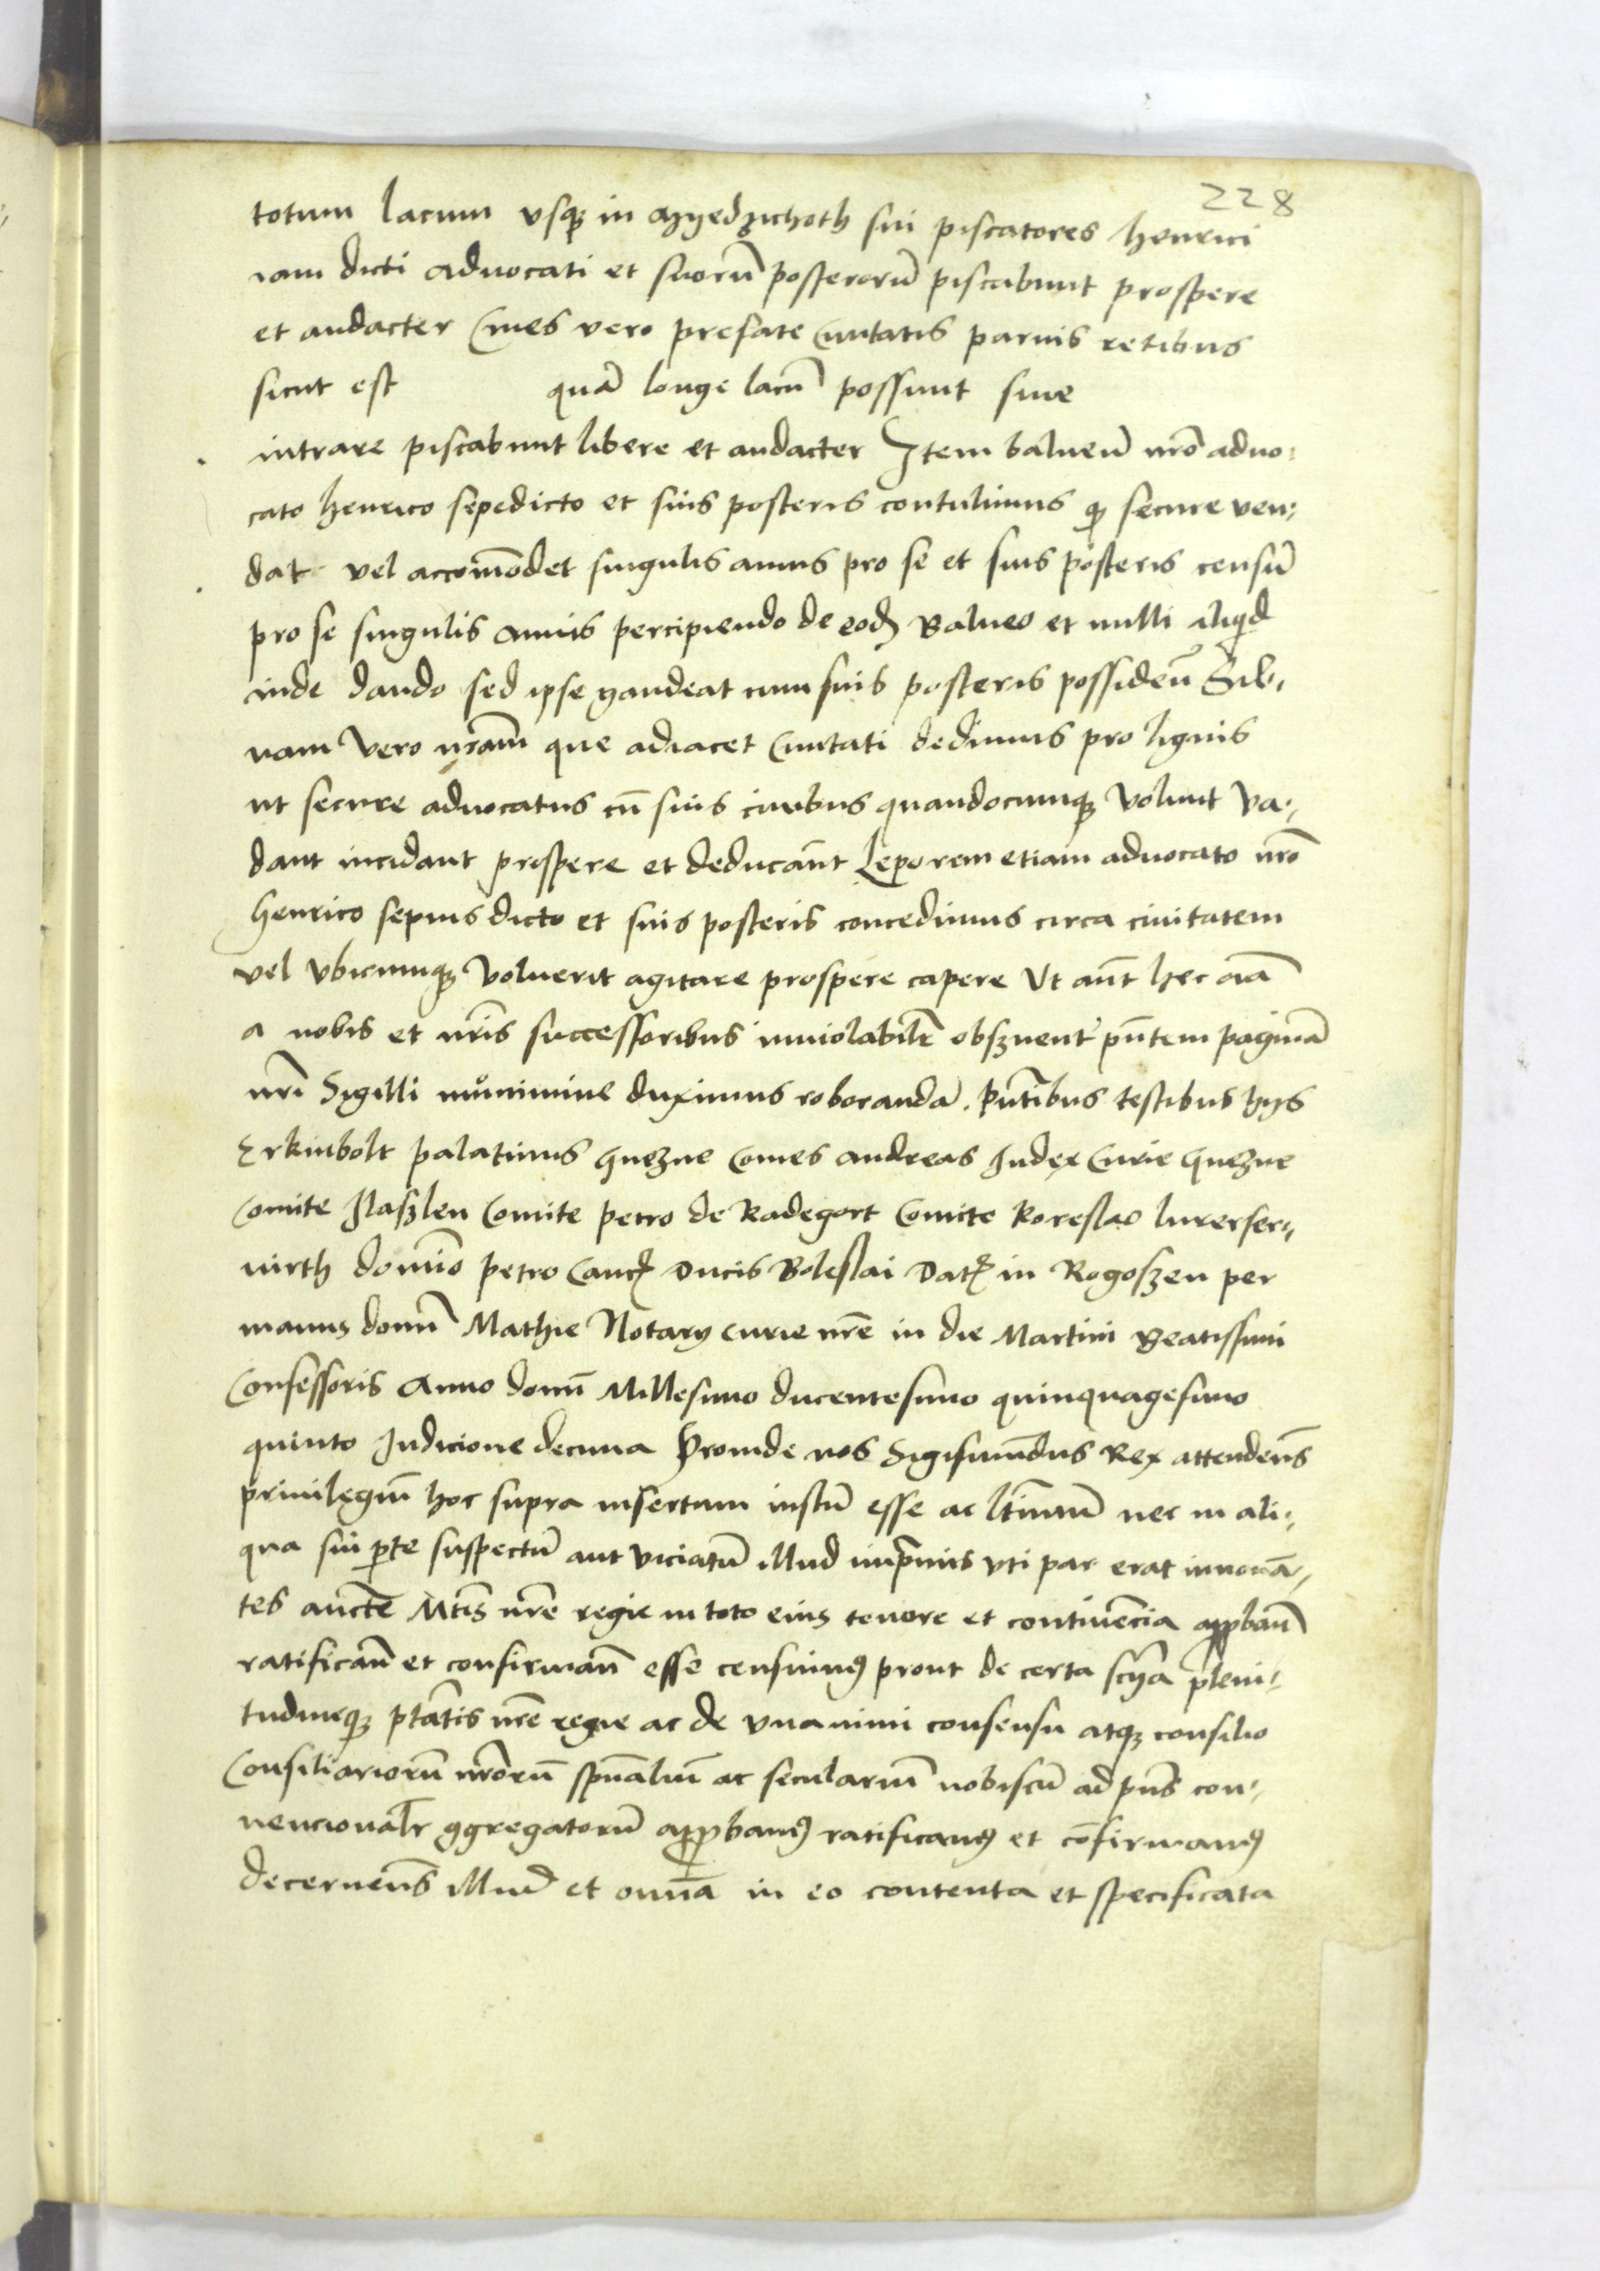 228
totum lacum vsq in Myedzichoth sui piscatores Henrici
iam dicti aduocati et suorū posterorū piscabunt prospere
et audacter Ciues vero prefate Ciuitatis paruis retibus
sicut est quā longe lacū possunt siue
intrare piscabunt libere et audacter Item balneū nr̄o aduo:
cato Henrico sepedicto et suis posteris contulimus qͥ secure ven:
dat vel accōmodet singulis annis pro se et suis posteris censū
pro se singulis annis percipiendo de eodȝ Balneo et nulli aliqͥd
inde dando sed ipse gaudeat cum suis posteris possideñ Sil:
uam vero nr̄am que adiacet Ciuitati dedimus pro lignis
ut secure aduocatus cū suis ciuibus quandocumqȝ volunt va:
dant incidant prospere et deducānt Leporem etiam aduocato nr̄o
Henrico sepius dicto et suis posteris concedimus circa ciuitatem
vel vbicumqȝ voluerit agitare prospere capere Vt aūt hec oīa
a nobis et nr̄is successoribus inuiolabilr̄ obszruentr̄ pn̄tem paginā
nr̄i Sigilli munimine duximus roborandā. Pn̄tibus testibus hijs
Erkinbolt palatinus Gnezne Comes Andreas Iudex Curie Gnezne
Comite Comite Petro de Radegort Comite Koreslao
domīo Petro Canc̄ Ducis Boleslai Dat̄ in Rogoszen per
manus domī Mathie Notary curie nr̄e in die Martini Beatissimi
Confessoris Anno domī Millesimo ducentesimo quinquagesimo
quinto Indicione decima Proinde nos Sigismūdus Rex attendeñs
priuilegiū hoc supra insertum iustū esse ac ltīmum nec in ali:
qua sui pͣte suspectū aut viciatū illud inpͥmis vti par erat innouā:
tes aucte Mt̄is nr̄e regie in toto eius tenore et continēcia appͦbañ
ratificañ et confirmañ esse censuimȝ prout de certa scīa pleni:
tudineqȝ ptātis nr̄e regie ac de vnanimi consensu atqȝ consilio
Consiliariorū nr̄orū spūaliū ac secularium nobiscū ad pn̄s con:
uencionalr̄ ꝯgregatorū appͦbamȝ ratificamȝ et cōfirmamȝ
decerneñs illud et omīa in eo contenta et specificata